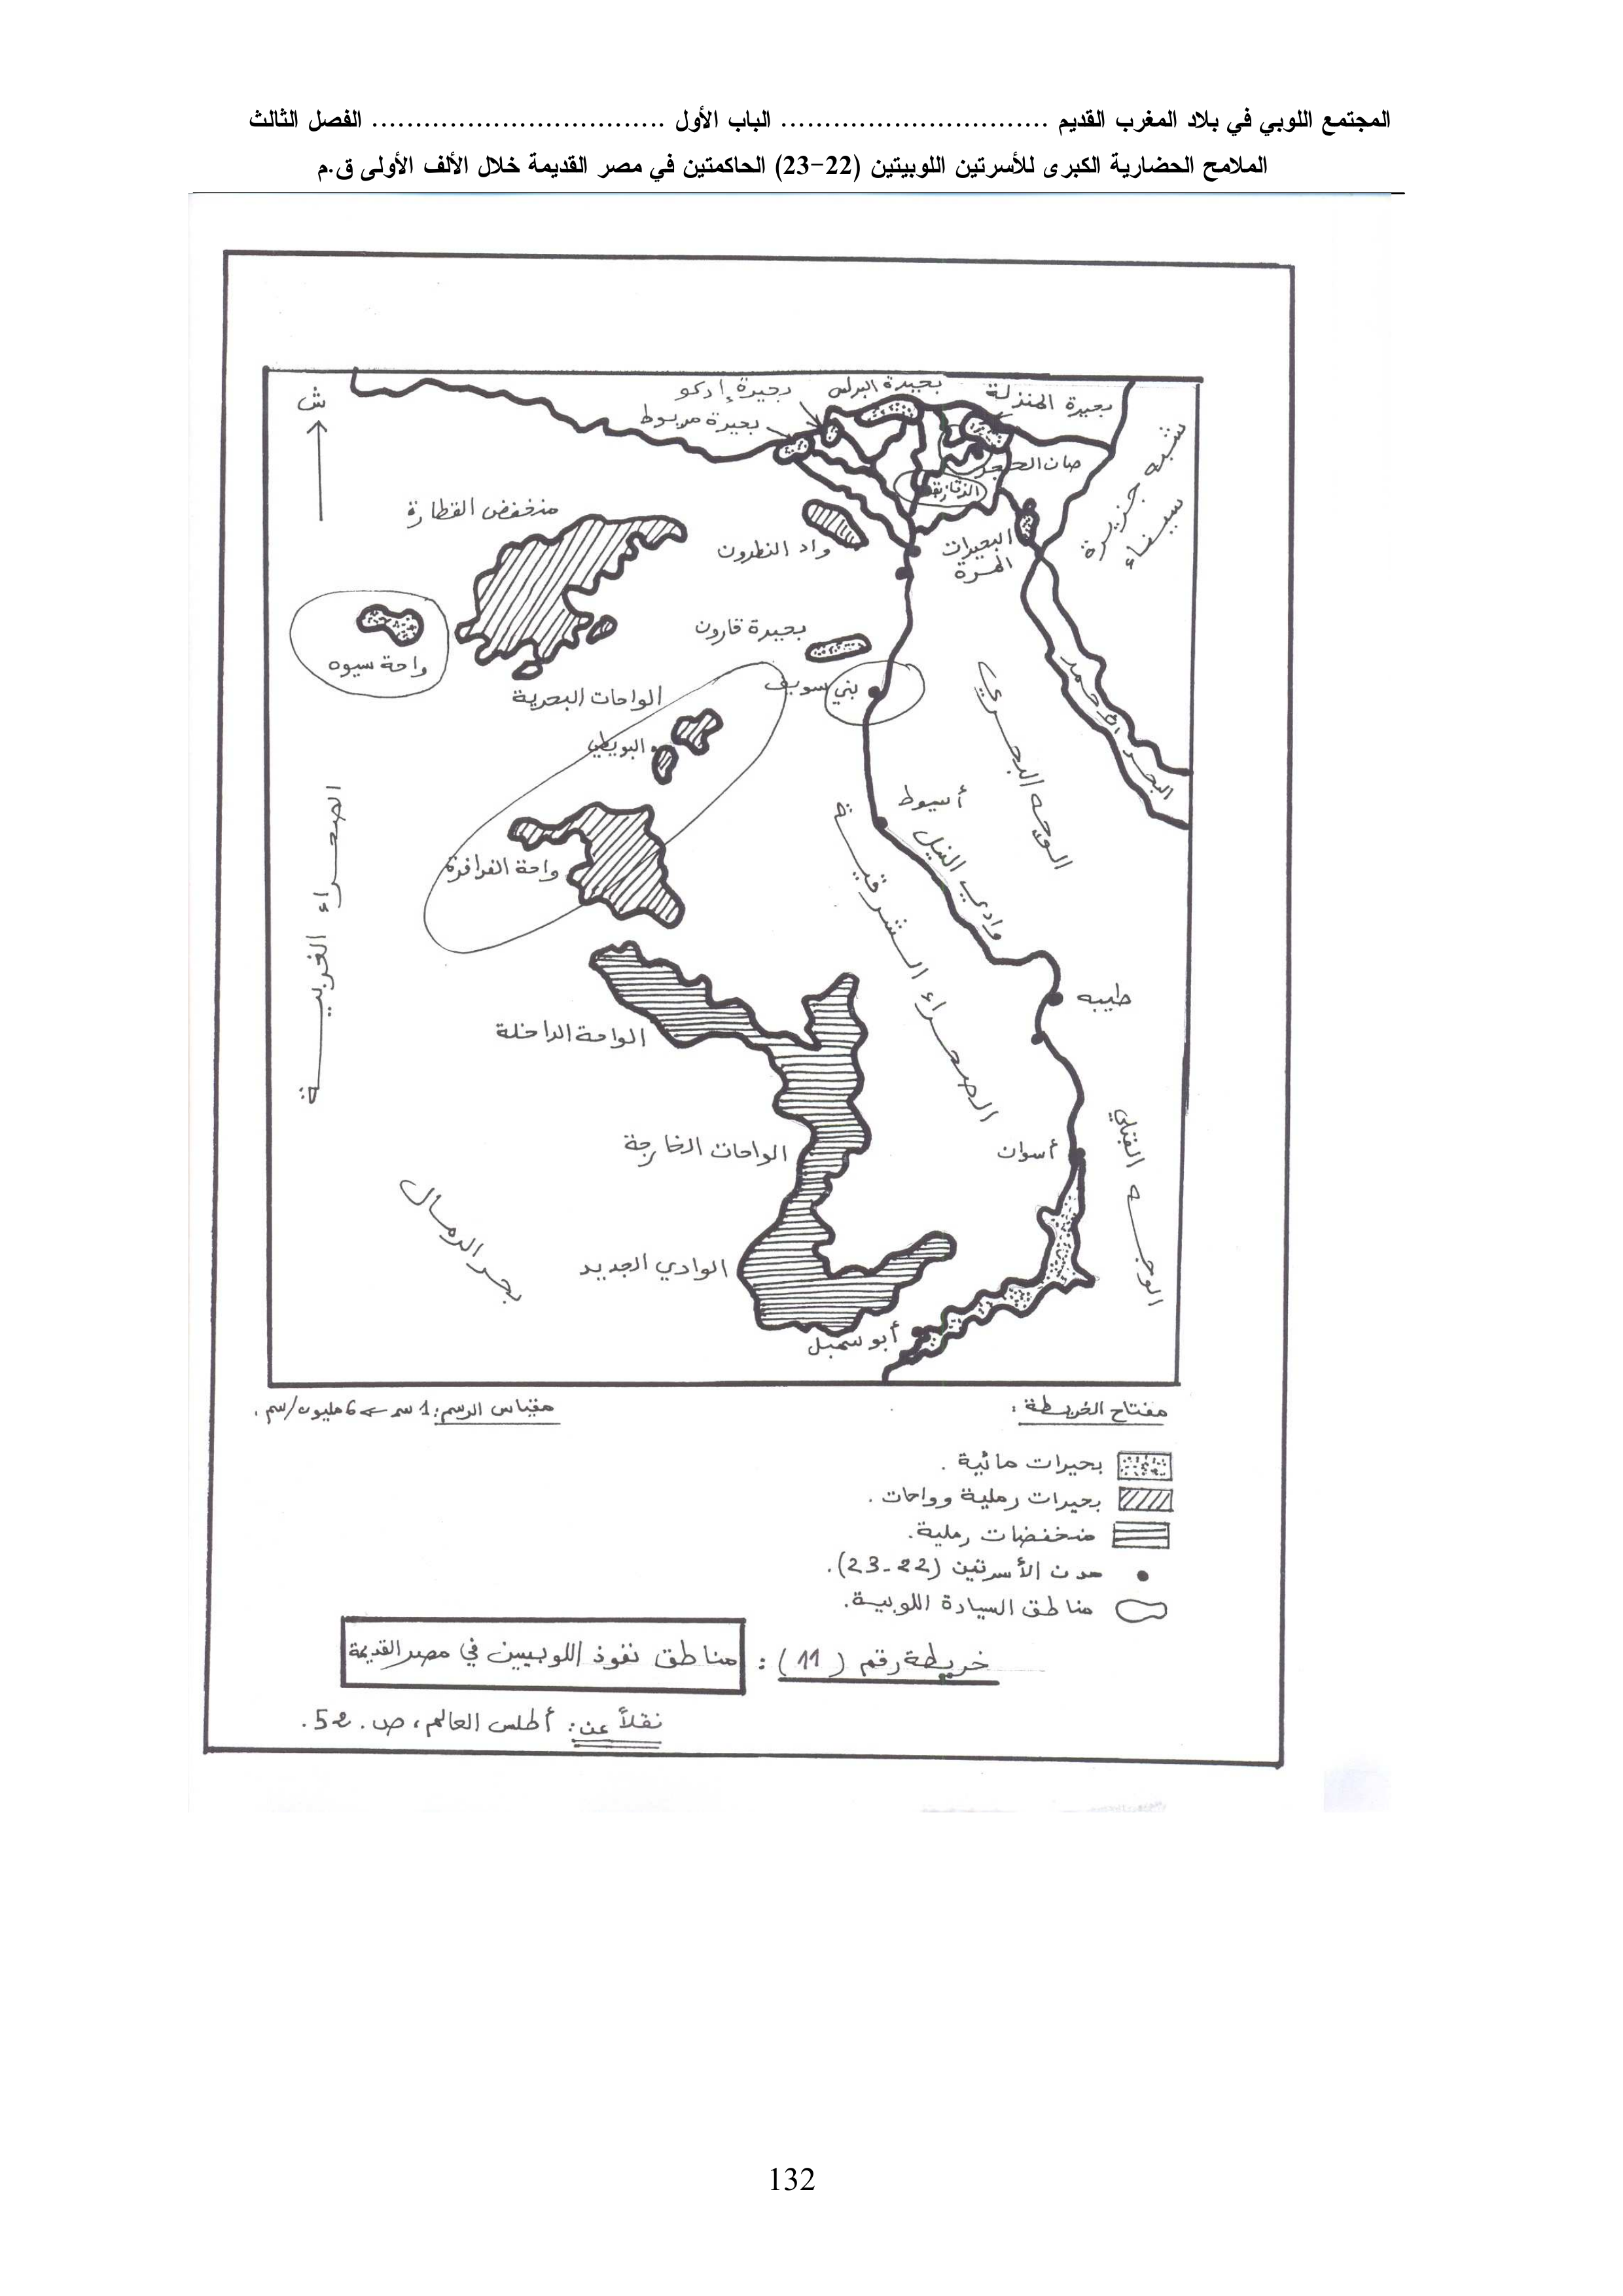 المجتمع اللوبي في بلاد المغرب القديم ............................... الباب الأول .................................. الفصل الثالث
الملامح الحضارية الكبرى للأسرتين اللوبيتين (22-23) الحاكمتين في مصر القديمة خلال الألف الأولى ق.م
ش
بحيرة إدكو
بحيرة البرلس
بحيرة المنزلة
بحيرة مريوط
صان الحجر
الزقازيق
شبه جزيرة
سيناء
منخفض القطارة
واد النطرون
البحيرات
المرة
بحيرة قارون
واحة سيوه
بني سويف
الواحات البحرية
البويطي
البحر الأحمر
الوجه البحري
أسيوط
وادي النيل
واحة الفرافرة
الصحراء الغربية
الصحراء الشرقية
طيبه
الواحة الداخلة
أسوان
الواحات الخارجة
الوجه القبلي
بحر الرمال
الوادي الجديد
أبو سمبل
مفتاح الخريطة :
مقياس الرسم: 1 سم ← 6 مليون/سم .
بحيرات مائية .
بحيرات رملية وواحات .
منخفضات رملية.
مدن الأسرتين (22-23).
مناطق السيادة اللوبية.
خريطة رقم (11) : مناطق نفوذ اللوبيين في مصر القديمة
نقلاً عن: أطلس العالم، ص. 52.
132